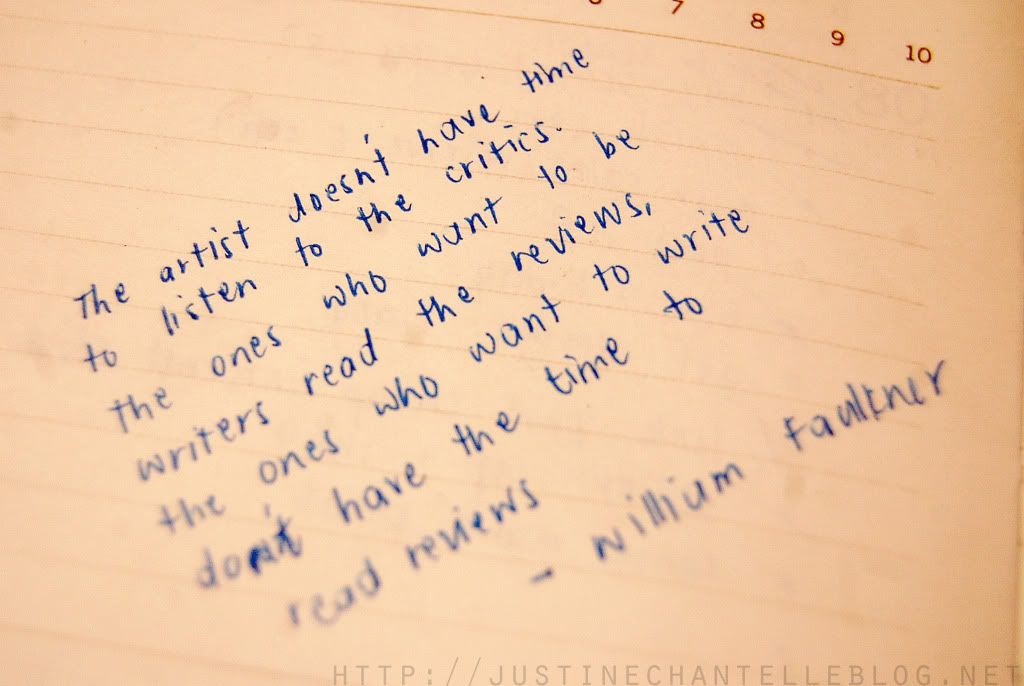 7 8 9 10
The artist doesn't have time
to listen to the critics.
the ones who want to be
writers read the reviews,
the ones who want to write
don't have the time to
read reviews
- william Faulkner
HTTP://JUSTINECHANTELLEBLOG.NET